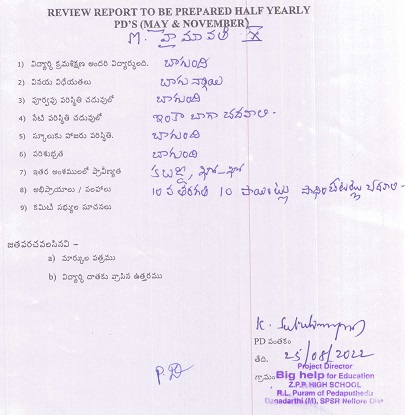 REVIEW REPORT TO BE PREPARED HALF YEARLY
PD'S (MAY & NOVEMBER)
M. హైమావతి X
1) విద్యార్థి క్రమశిక్షణ అందరి విద్యార్థులది. బాగుంది
2) వినయ విధేయతలు బాగున్నాయి
3) పూర్వపు పరిస్థితి చదువులో బాగుంది
4) నేటి పరిస్థితి చదువులో ఇంకా బాగా చదవాలి.
5) స్కూలుకు హాజరు పరిస్థితి. బాగుంది
6) పరిశుభ్రత బాగుంది
7) ఇతర అంశములలో ప్రావీణ్యత కబడ్డి, ఖో-ఖో
8) అభిప్రాయాలు / సలహాలు 10వ తరగతి 10 పాయింట్లు
9) కమిటీ సభ్యుల సూచనలు
జతపరచవలసినవి –
a) మార్కుల పత్రము
b) విద్యార్థి దాతకు వ్రాసిన ఉత్తరము
P.D
PD సంతకం
తేది. 25/08/2022
గ్రామం
Project Director
Big help for Education
Z.P.P. HIGH SCHOOL
R.L. Puram of Pedaputhedu
(M), SPSR Nellore Dist